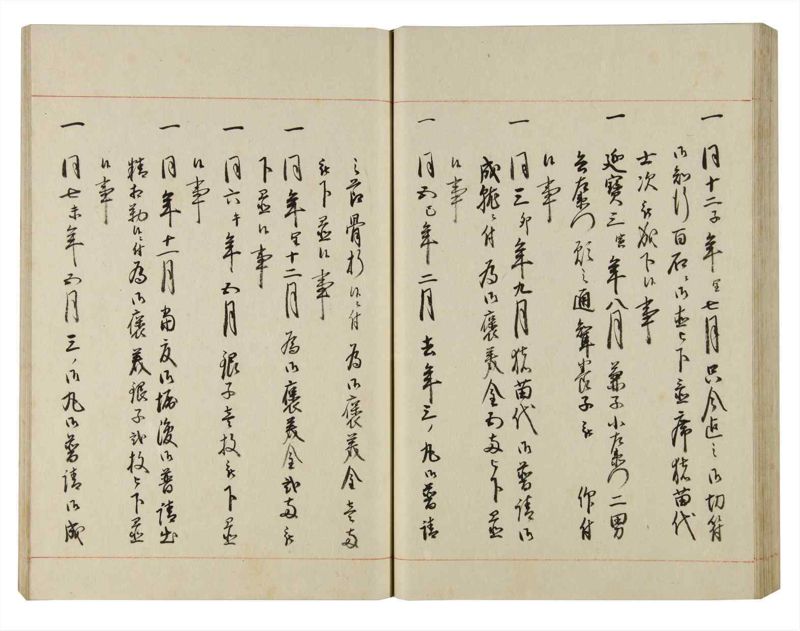 一 同十二子年閏七月只今迄之御切符
御知行百石ニ御直シ被下置席猪苗代
士次被 下候事
一 延寶三寅年八月兼子小左衛門二男
与左衛門願之通聟養子被 仰付
候事
一 同三卯年九月猪苗代御普請御
成就ニ付為御褒美金五両被下置
候事
一 同五巳年二月去年三ノ丸御普請
之節骨折候ニ付為御褒美金壱両
被下置候事
一 同年閏十二月為御褒美金弐両被
下置候事
一 同六午年五月銀子壱枚被下置
候事
一 同年十一月当夏御城後御普請出
精相勤候ニ付為御褒美銀子弐枚被下置
候事
一 同七未年五月三ノ御丸御普請御成